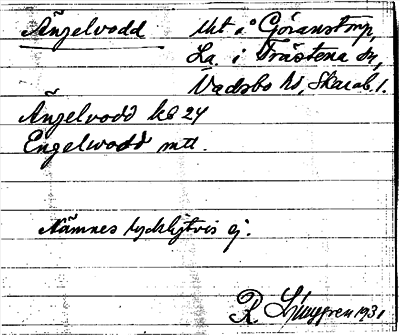 Ängelvodd
Uht å Göranstorp,
La. i Trästena sn,
Vadsbo hd, Skarab. l.
Ängelvodd kb 24
Engelwodd mtt.
Nämnes tydligtvis ej.
R 1931